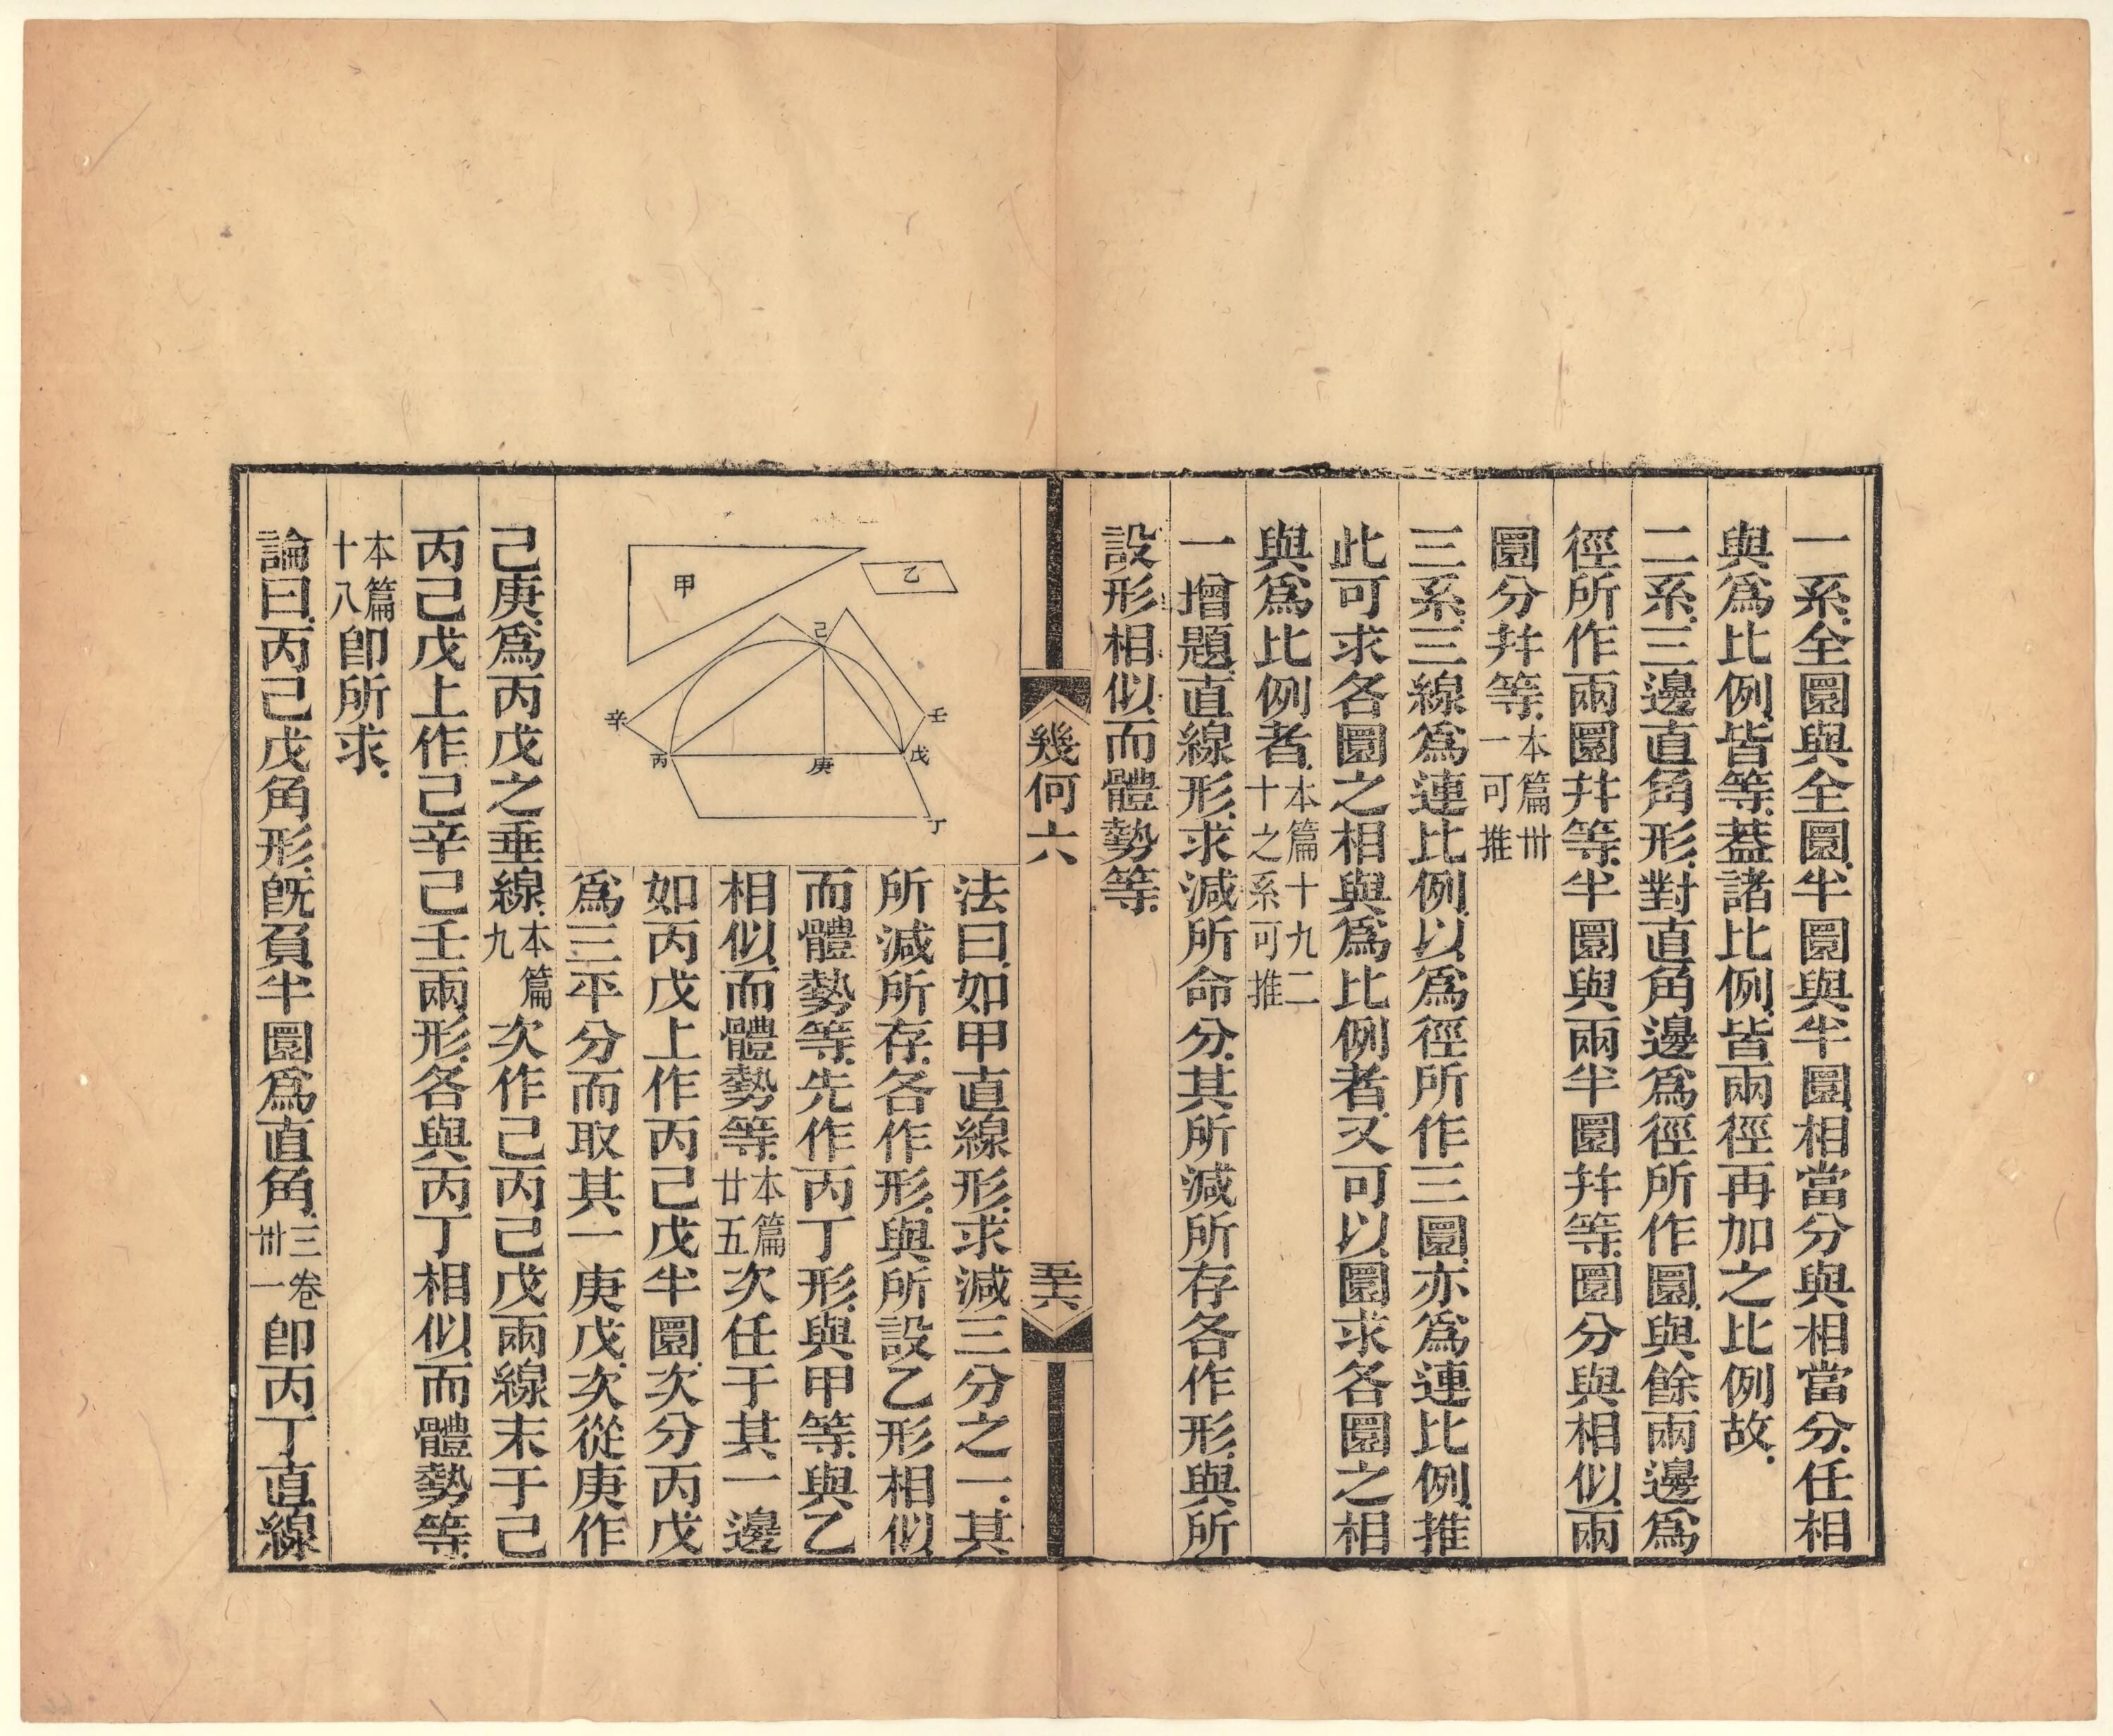 一系全圜與全圜半圜與半圜相當分與相當分任相
與爲比例皆等葢諸比例皆兩徑再加之比例故
二系三邊直角形對直角邊爲徑所作圜與餘兩邊爲
徑所作兩圜幷等半圜與兩半圜幷等圜分與相似兩
圜分幷等本篇卅一可推
三系三線爲連比例以爲徑所作三圜亦爲連比例推
此可求各圜之相與爲比例者又可以圜求各圜之相
與爲比例者本篇十九二十之系可推
一增題直線形求減所命分其所減所存各作形與所
設形相似而體勢等
幾何六
五十六
甲
乙
己
辛
壬
丙
庚
戊
丁
法曰如甲直線形求減三分之一其
所減所存各作形與所設乙形相似
而體勢等先作丙丁形與甲等與乙
相似而體勢等本篇廿五次任于其一邊
如丙戊上作丙己戊半圜次分丙戊
爲三平分而取其一庚戊次從庚作
己庚爲丙戊之垂線本篇九次作己丙己戊兩線末于己
丙己戊上作己辛己壬兩形各與丙丁相似而體勢等
本篇十八卽所求
論曰丙己戊角形旣負半圜爲直角三卷卅一卽丙丁直線